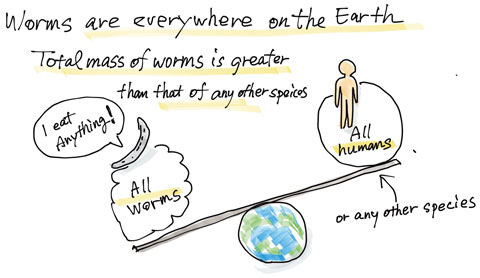 Worms are everywhere on the Earth
Total mass of worms is greater
than that of any other speices
I eat
Anything!
All
worms
All
humans
or any other species